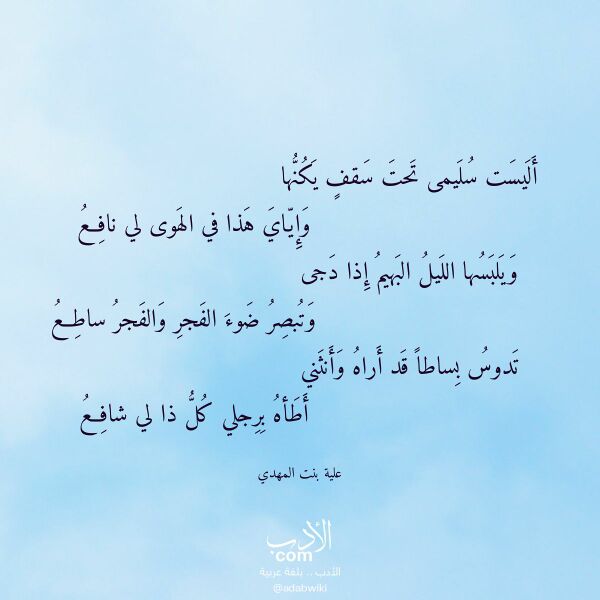 أَلَيسَت سُلَيمى تَحتَ سَقفٍ يَكُنُّها
وَإِيّايَ هَذا في الهَوى لي نافِعُ
وَيَلبَسُها اللَيلُ البَهيمُ إِذا دَجى
وَتُبصِرُ ضَوءَ الفَجرِ وَالفَجرُ ساطِعُ
تَدوسُ بِساطاً قَد أَراهُ وَأَنثَني
أَطَأهُ بِرِجلي كُلُّ ذا لي شافِعُ
علية بنت المهدي
الأدب
com
الأدب .. بلغة عربية
@adabwiki